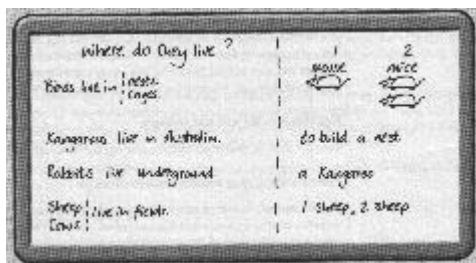 Where do they live ?
Birds live in nests.
cages
Kangaroos live in Australia.
Rabbits live underground
Sheep live in fields.
Cows
1 2
mouse mice
to build a nest
a Kangaroo
1 sheep, 2 sheep